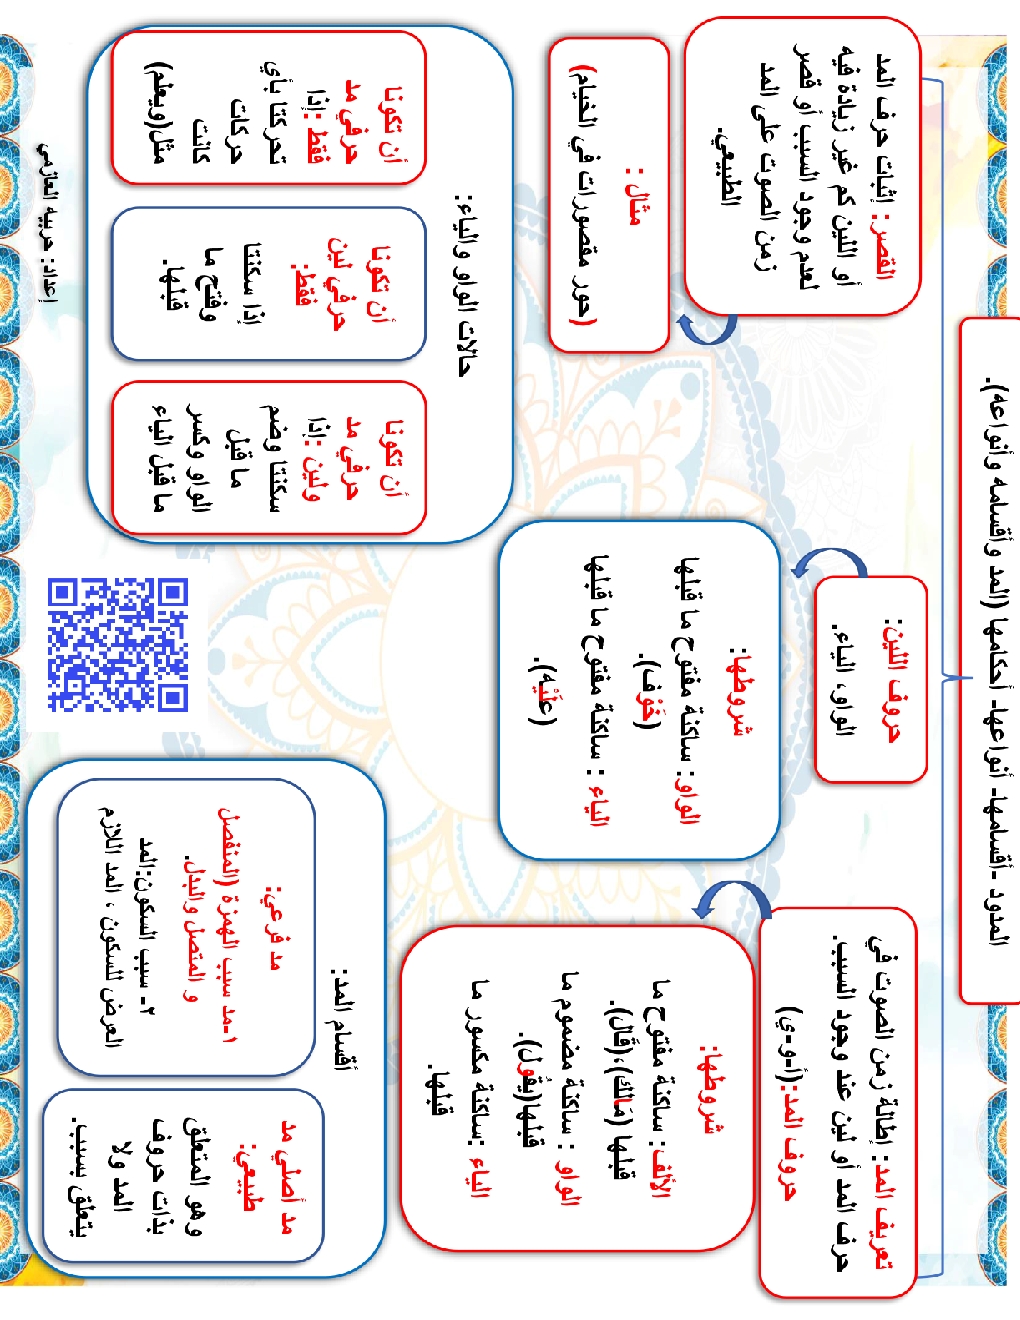 المدود -أقسامها- أنواعها- أحكامها (المد وأقسامه وأنواعه).
تعريف المد: إطالة زمن الصوت في
حرف المد أو لين عند وجود السبب.
حروف المد:(أ-و-ي)
شروطها:
الألف: ساكنة مفتوح ما
قبلها (مَالك)،(قَال).
الواو : ساكنة مضموم ما
قبلها(يقُول).
الياء :ساكنة مكسور ما
قبلها.
حروف اللين:
الواو، الياء.
شروطها:
الواو: ساكنة مفتوح ما قبلها
(خَوْف).
الياء : ساكنة مفتوح ما قبلها
(عَلَيْه).
القصر: إثبات حرف المد
أو اللين كم غير زيادة فيه
لعدم وجود السبب أو قصر
زمن الصوت على المد
الطبيعي.
مثال :
(حور مقصورات في الخيام)
أقسام المد:
مد أصلي مد
طبيعي:
وهو المتعلق
بذات حروف
المد ولا
يتعلق بسبب.
مد فرعي:
١-مد سبب الهمزة (المنفصل
و المتصل والبدل.
٢- سبب السكون:المد
العرض للسكون ، المد اللازم
حالات الواو والياء:
أن تكونا
حرفي مد
ولين :إذا
سكنتا وضم
ما قبل
الواو وكسر
ما قبل الياء
أن تكونا
حرفي لين
فقط:
إذا سكنتا
وفتح ما
قبلها.
أن تكونا
حرفي مد
فقط :إذا
تحركتا بأي
حركات
كانت
مثل(ويعلم)
إعداد: حربيه العازمي